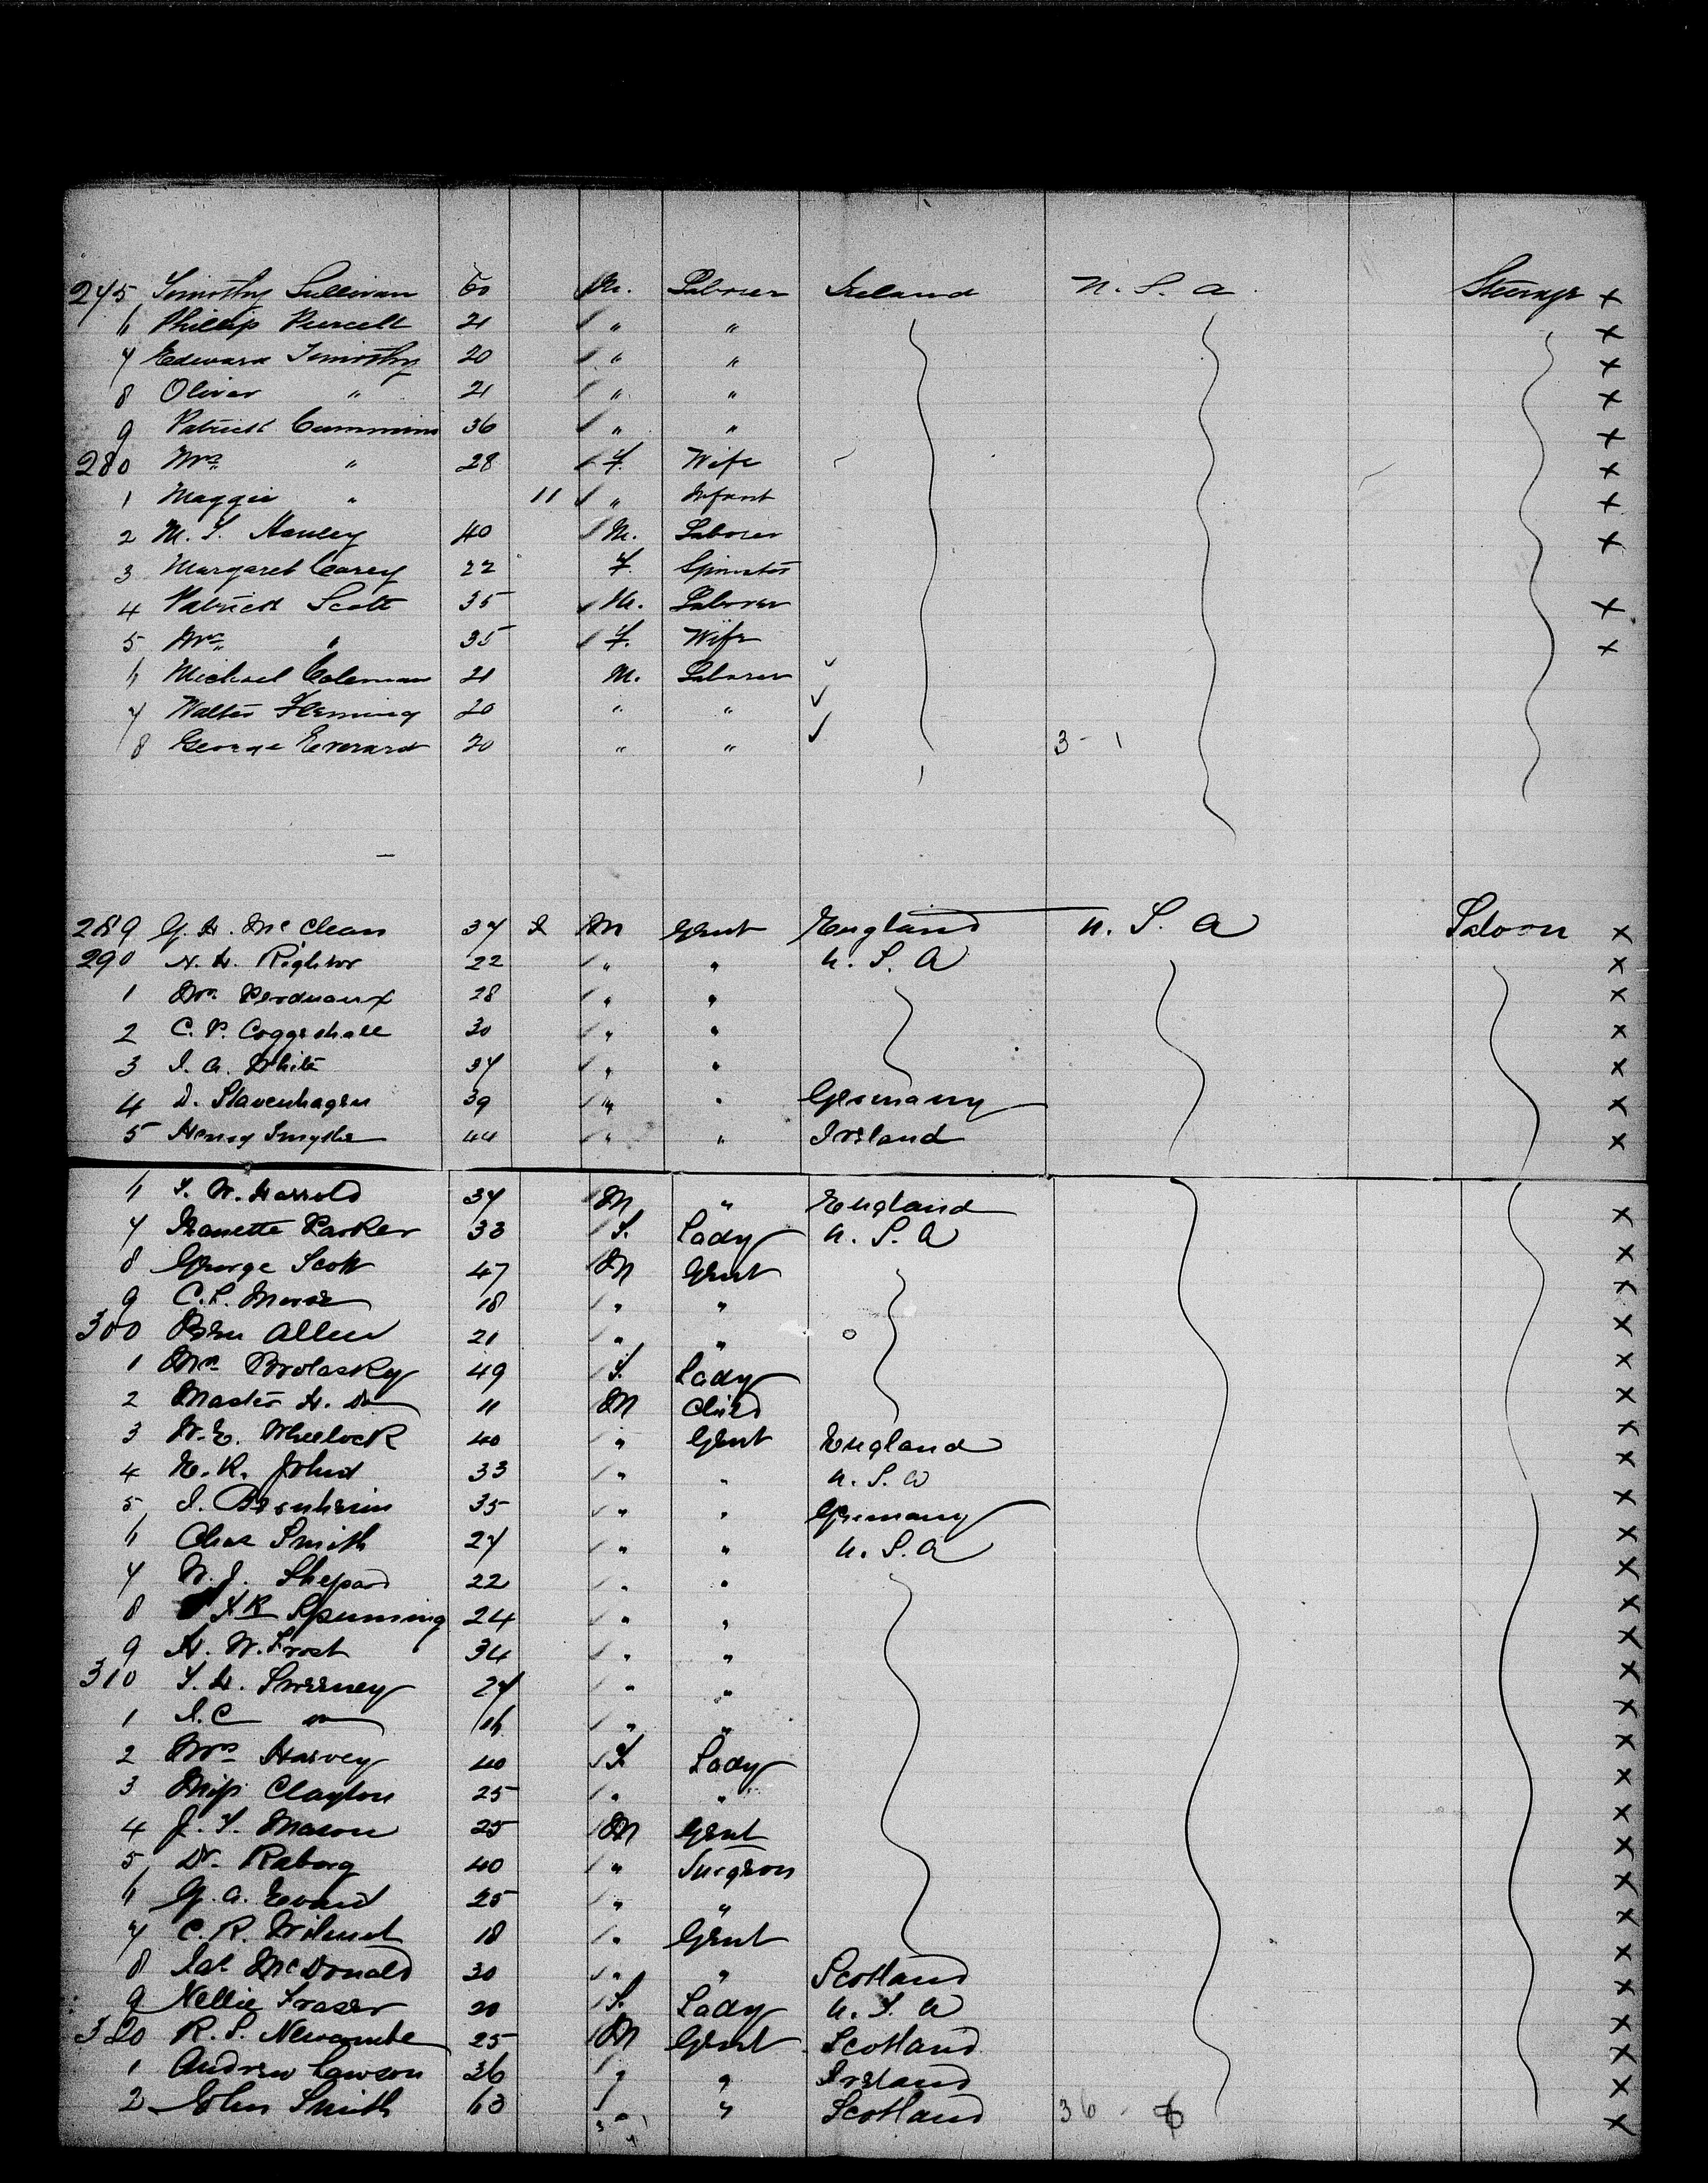 275 Timothy Sullivan 60 M. Laborer Ireland U. S. A. Steerage x
6 Phillip Purcell 21 " " x
7 Edward Timothy 20 " " x
8 Oliver " 21 " " x
9 Patrick Cummins 36 " " x
280 Mrs " 28 F. Wife x
1 Maggie " 11 " Infant x
2 M. S. Hanley 40 M. Laborer x
3 Margaret Carey 22 F. Spinster
4 Patrick Scott 35 M. Laborer x
5 Mrs " 35 F. Wife x
6 Michael Coleman 21 M. Laborer
7 Walter Fleming 20 " "
8 George Everard 20 " " 3 - 1
289 G. H. McClean 37 M Gent England U. S. A Saloon x
290 N. H. " " 22 U. S. A x
1 Mrs. 28 " " x
2 C. P. Coggeshall 30 " " x
3 J. A. White 37 " " x
4 D. Stavenhagen 39 " " Germany x
5 Henry Smythe 44 " " Ireland x
6 T. W. Harrold 37 M " England x
7 Nanette Parker 33 F. Lady U. S. A x
8 George Scott 47 M Gent x
9 C. L. Morse 18 " " x
300 Ben Allen 21 " " x
1 Mrs Brolasky 49 F. Lady x
2 Master H. Do 11 M Child x
3 W. E. Wheelock 40 " Gent England x
4 E. K. 33 " " U. S. A x
5 J. Bernheim 35 " " Germany x
6 Chas Smith 27 " " U. S. A x
7 W. J. Shepard 22 " " x
8 Spenning 24 " " x
9 H. W. Frost 34 " " x
310 T. H. Sweeney 27 " " x
1 J. C Do 16 " " x
2 Mrs Harvey 40 F Lady x
3 Miss Clayton 25 " " x
4 J. T. Mason 25 M Gent x
5 Dr. Raborg 40 " Surgeon x
6 G. A. Evans 25 " " x
7 C. R. Wilmot 18 " Gent x
8 Jas McDonald 30 " " Scotland x
9 Nellie Fraser 20 F. Lady U. S. A x
320 R. S. Newcombe 25 M Gent Scotland x
1 Andrew Lawson 36 " " Ireland x
2 John Smith 63 " Scotland 36 - 6 x